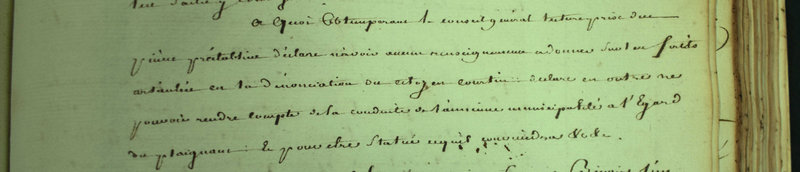 a quoi obtemperant le conseil général lecture prise due
pièce préétablive déclare n'avoir aucun renseignement a donner sur les faits
articulés en la dénonciation du citoyen courtin : declare en outre ne
pouvoir rendre compte de la conduite de l'ancienne municipalité à l'Egard
du plaignant : Et pour etre statué ce qu'il conviendra &c &c.